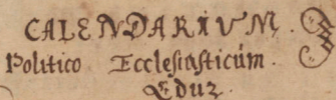 CALENDARIUM.
Politico Ecclesiasticúm.
Eduz